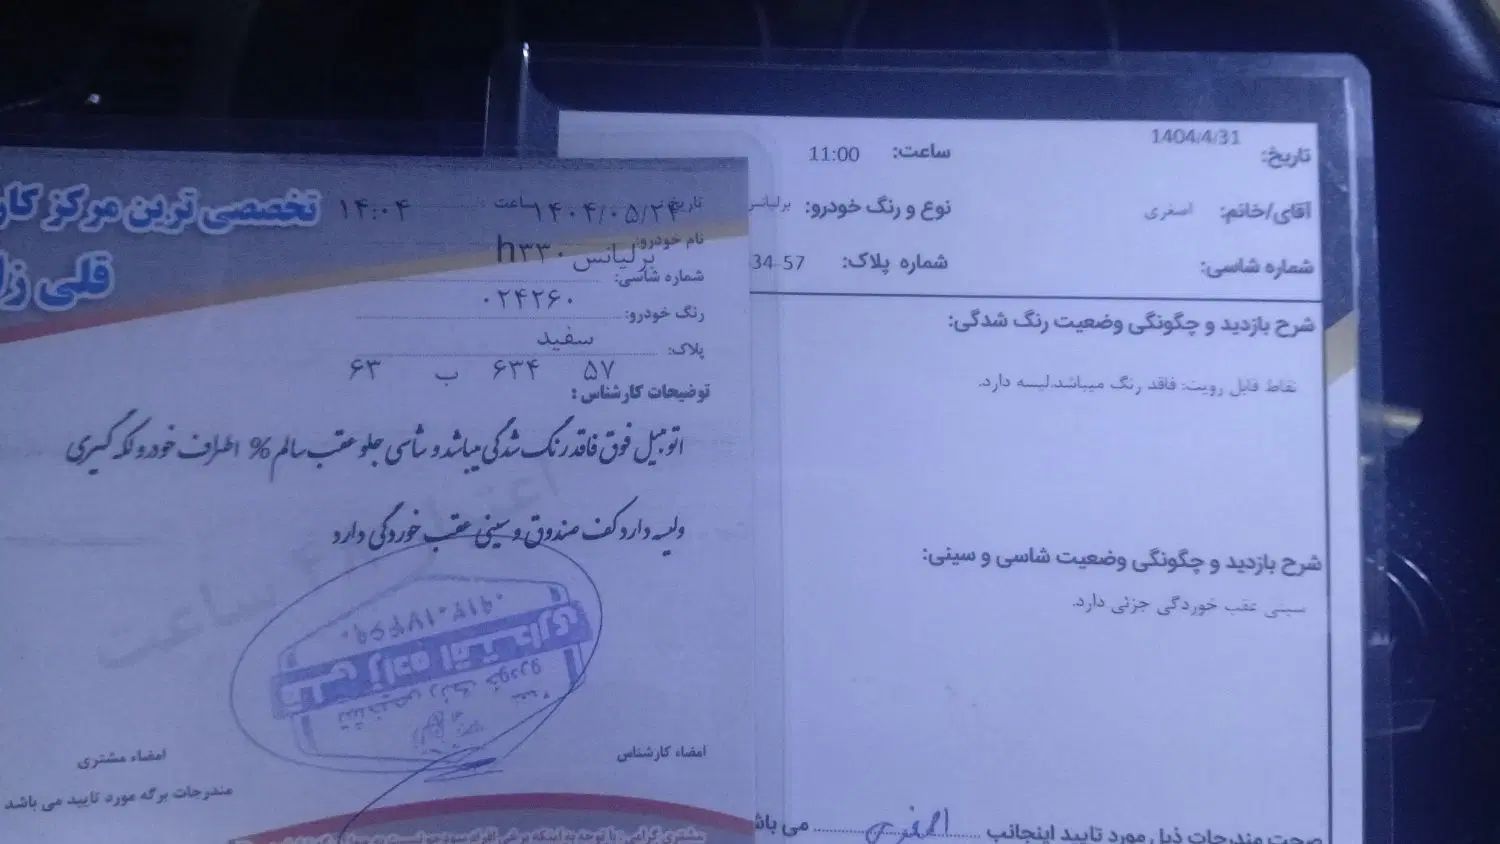 تاریخ: 1404/4/31
ساعت: 11:00
آقای/خانم: اصغری
نوع و رنگ خودرو: برلیانس
شماره شاسی:
شماره پلاک: 57 34
شرح بازدید و چگونگی وضعیت رنگ شدگی:
نقاط قابل رویت: فاقد رنگ میباشد.لیسه دارد.
شرح بازدید و چگونگی وضعیت شاسی و سینی:
سینی عقب خوردگی جزئی دارد.
صحت مندرجات ذیل مورد تایید اینجانب می باشد
تخصصی ترین مرکز
قلی
تاریخ: ۱۴۰۴/۰۵/۲۴ ساعت ۱۴:۰۴
نام خودرو: برلیانس h۳۳۰
شماره شاسی: ۰۲۴۲۶۰
رنگ خودرو: سفید
پلاک: ۵۷ ۶۳۴ ب ۶۳
توضیحات کارشناس :
اتومبیل فوق فاقد رنگ شدگی میباشد و شاسی جلو عقب سالم % اطراف خودرو لکه گیری
ولیسه دارد کف صندوق و سینی عقب خوردگی دارد
اعتبار ساعت
قلی زاده اقتداری
تشخیص رنگ خودرو
امضاء کارشناس
امضاء مشتری
مندرجات برگه مورد تایید می باشد